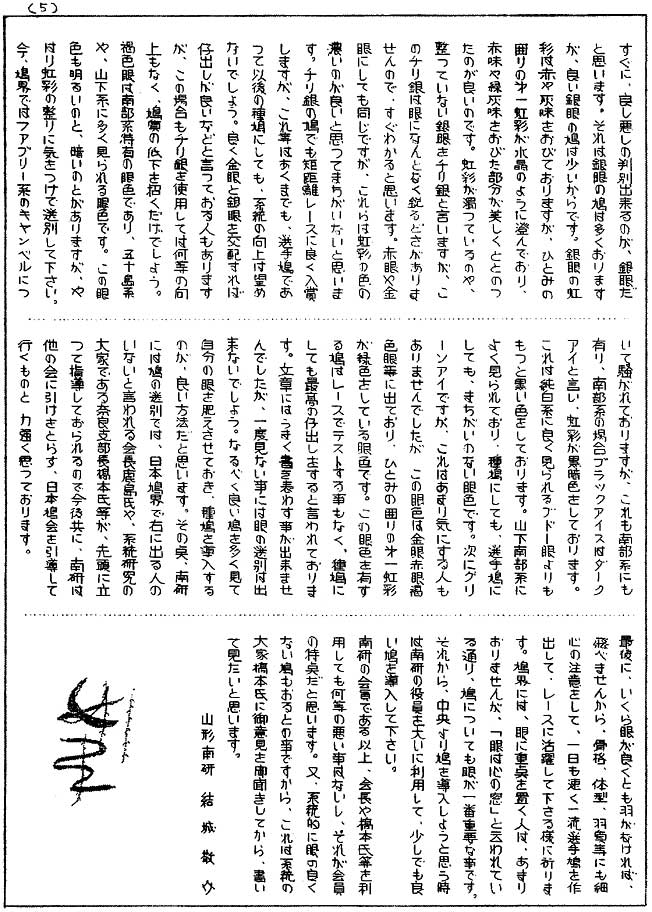 (5)
すぐに、良し悪しの判別出来るのが、銀眼だ
と思います。それは銀眼の鳩は多くおります
が、良い銀眼の鳩は少いからです。銀眼の虹
彩は赤や灰味をおびておりますが、ひとみの
囲りの第一虹彩が水晶のように澄んでおり、
赤味や緑灰味をおびた部分が美しくととのっ
たのが良いのです。虹彩が濁っているのや、
整っていない銀眼をチリ銀と言いますが、こ
のチリ銀は眼になんとなく鋭るどさがありま
せんので、すぐわかると思います。赤眼や金
眼にしても同じですが、これらは虹彩の色の
濃いのが良いと思ってまちがいないと思いま
す。チリ銀の鳩でも短距離レースに良く入賞
しますが、これ等はあくまでも、選手鳩であ
って以後の種鳩にしても、系統の向上は望め
ないでしょう。良く金眼と銀眼を交配すれば
仔出しが良いなどと言っておる人もあります
が、この場合もチリ銀を使用しては何等の向
上もなく、鳩質の低下を招くだけでしょう。
褐色眼は南部系特有の眼色であり、五十島系
や、山下系に多く見られる眼色です。この眼
色も明るいのと、暗いのとがありますが、や
はり虹彩の整りに気をつけて選別して下さい。
今、鳩界ではファブリー系のキャンベルにつ
いて騒がれておりますが、これも南部系にも
有り、南部系の場合ブラックアイスはダーク
アイと言い、虹彩が黒暗色をしております。
これは純白系に良く見られるブドー眼よりも
もっと黒い色をしております。山下南部系に
よく見られており、種鳩にしても、選手鳩に
しても、まちがいのない眼色です。次にグリ
ーンアイですが、これはあまり気にする人も
ありませんでしたが、この眼色は金眼赤眼褐
色眼等に出ており、ひとみの囲りの第一虹彩
が緑色をしている眼色です。この眼色を有す
る鳩はレースでテストする事もなく、種鳩に
しても最高の仔出しをすると言われておりま
す。文章にはうまく書き表わす事が出来ませ
んでしたが、一度見ない事には眼の選別は出
来ないでしょう。なるべく良い鳩を多く見て
自分の眼を肥えさせておき、種鳩を導入する
のが、良い方法だと思います。その点、南研
には鳩の選別では、日本鳩界で右に出る人の
いないと言われる会長鹿島氏や、系統研究の
大家である奈良支部長橋本氏等が、先頭に立
って指導しておられるので今後共に、南研は
他の会に引けをとらず、日本鳩会を引導して
行くものと力強く思っております。
最後に、いくら眼が良くとも羽がなければ、
飛べませんから、骨格、体型、羽質等にも細
心の注意をして、一日も速く一流選手鳩を作
出して、レースに活躍して下さる様に祈りま
す。鳩界には、眼に重点を置く人は、あまり
おりませんが、「眼は心の窓」と云われてい
る通り、鳩についても眼が一番重要な事です。
それから、中央より鳩を導入しようと思う時
は南研の役員を大いに利用して、少しでも良
い鳩を導入して下さい。
南研の会員である以上、会長や橋本氏等を利
用しても何等の悪い事はないし、それが会員
の特点だと思います。又、系統的に眼の良く
ない鳩もおるとの事ですから、これは系統の
大家橋本氏に御意見を御聞きしてから、書い
て見たいと思います。
山形南研 結城敬